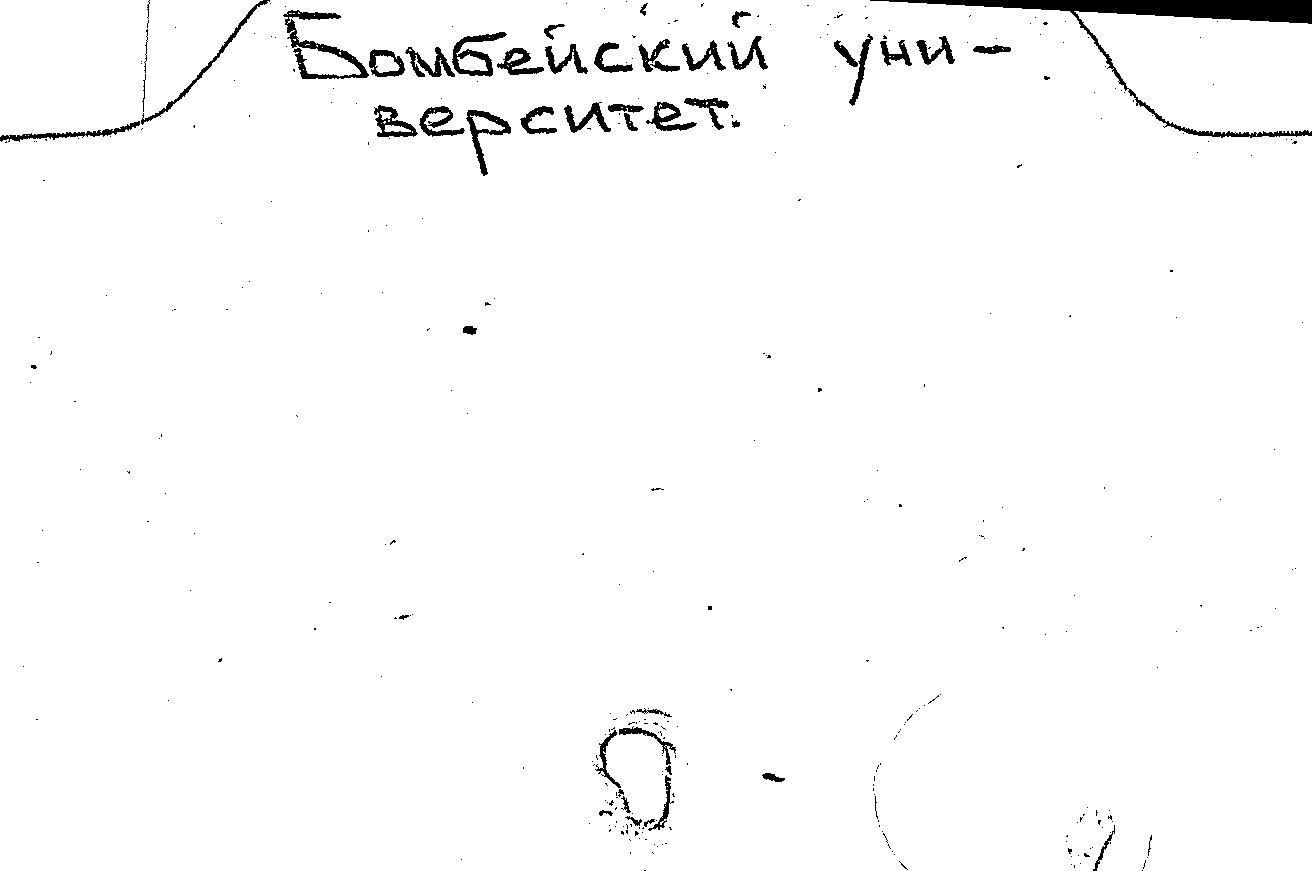 Бомбейский уни-
верситет.